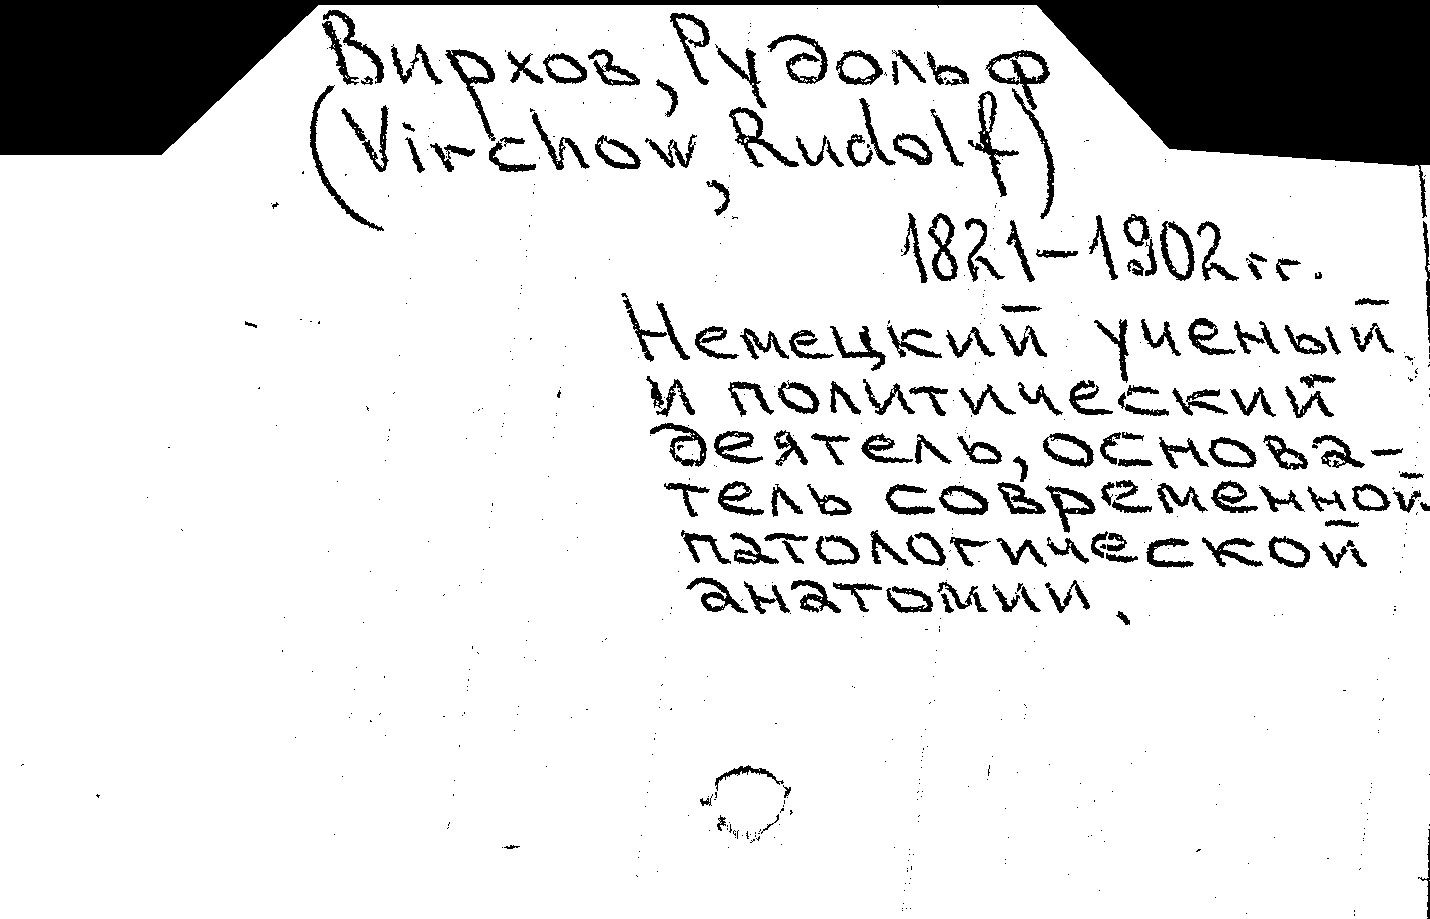 Вирхов, Рудольф
(Virchow, Rudolf)
1821-1902гг.
Немецкий ученый
и политический
деятель, основа-
тель современной
патологической
анатомии.